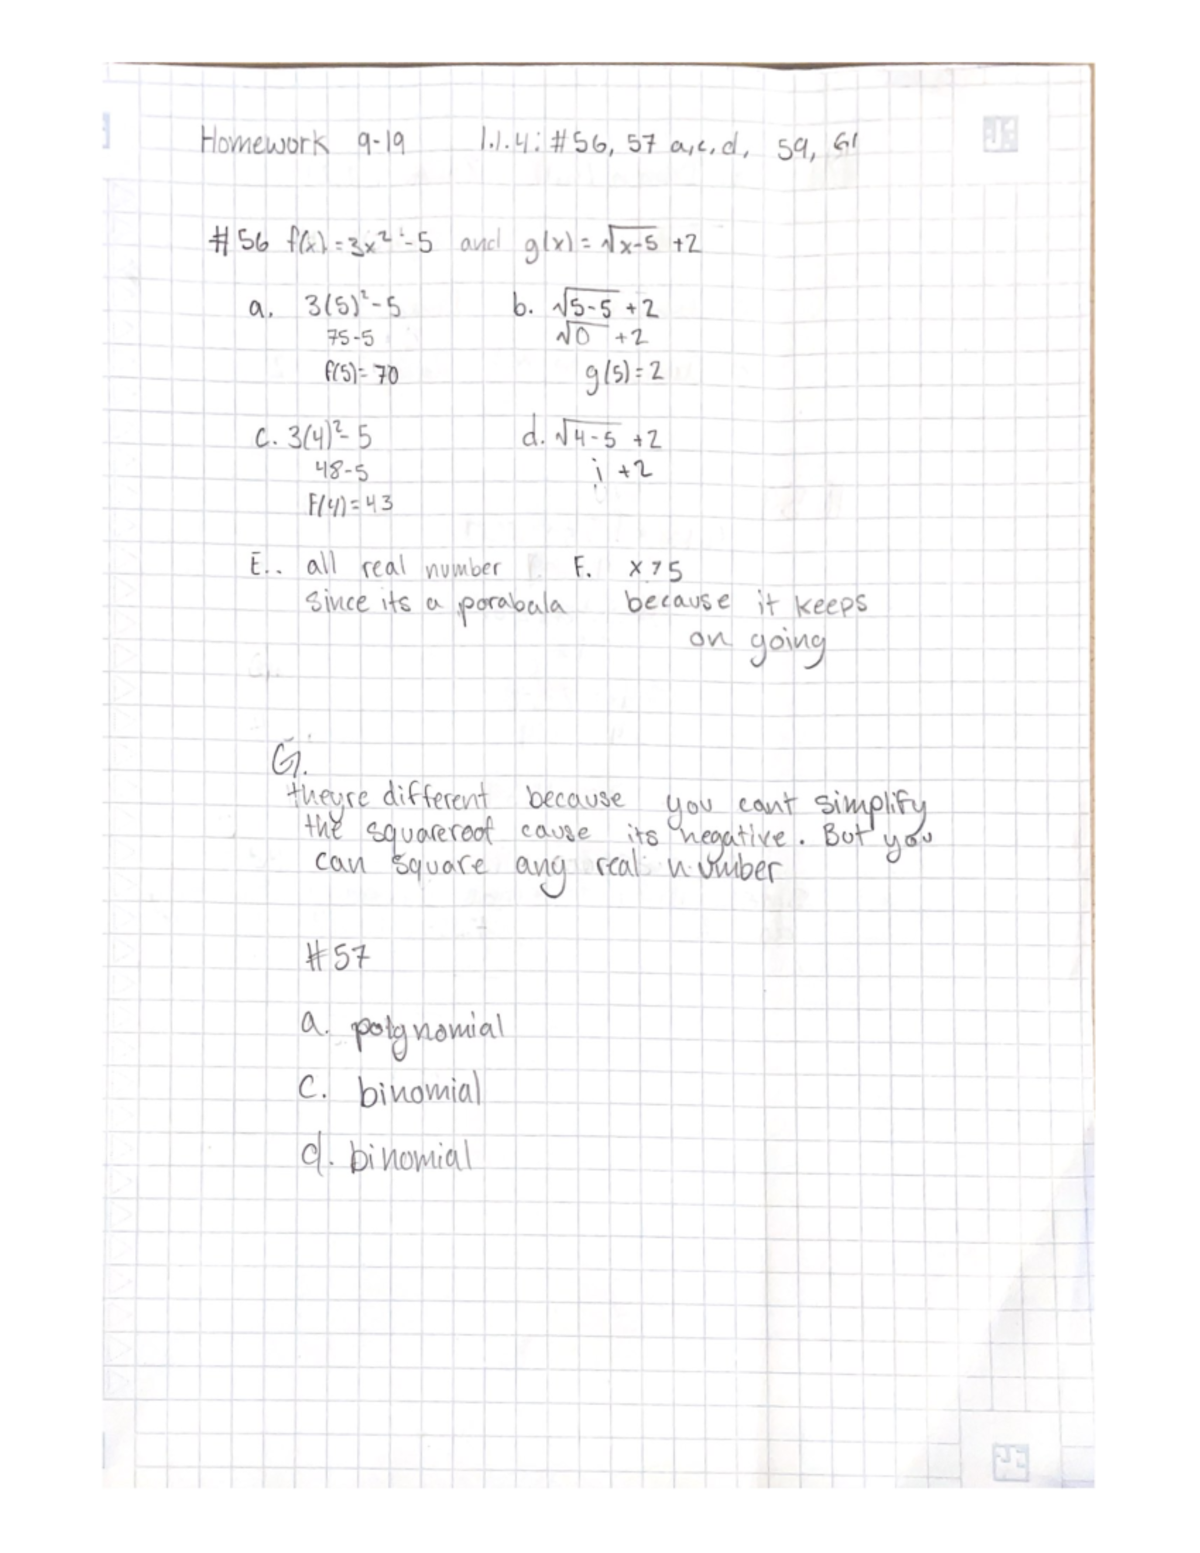 Homework 9-19 1.1.4: #56, 57 a,c,d, 59, 61
#56 f(x)=3x²-5 and g(x)=√x-5 +2
a. 3(5)²-5 b. √5-5 +2
75-5 √0 +2
f(5)=70 g(5)=2
c. 3(4)²-5 d. √4-5 +2
48-5 i +2
F(4)=43
E.. all real number F. x≥5
since its a porabala because it keeps
on going
G.
theyre different because you cant simplify
the squareroot cause its negative. But you
can square any real number
#57
a. polynomial
c. binomial
d. binomial